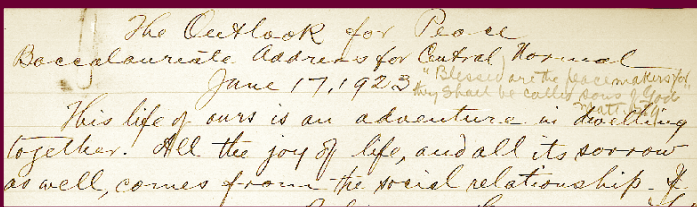 The Outlook for Peace
Baccalaureate Address for Central Normal
June 17, 1923
"Blessed are the peacemakers for
they shall be called sons of God
Matt. 5:9
This life of ours is an adventure in dwelling
together. All the joy of life, and all its sorrow
as well, comes from the social relationship. If